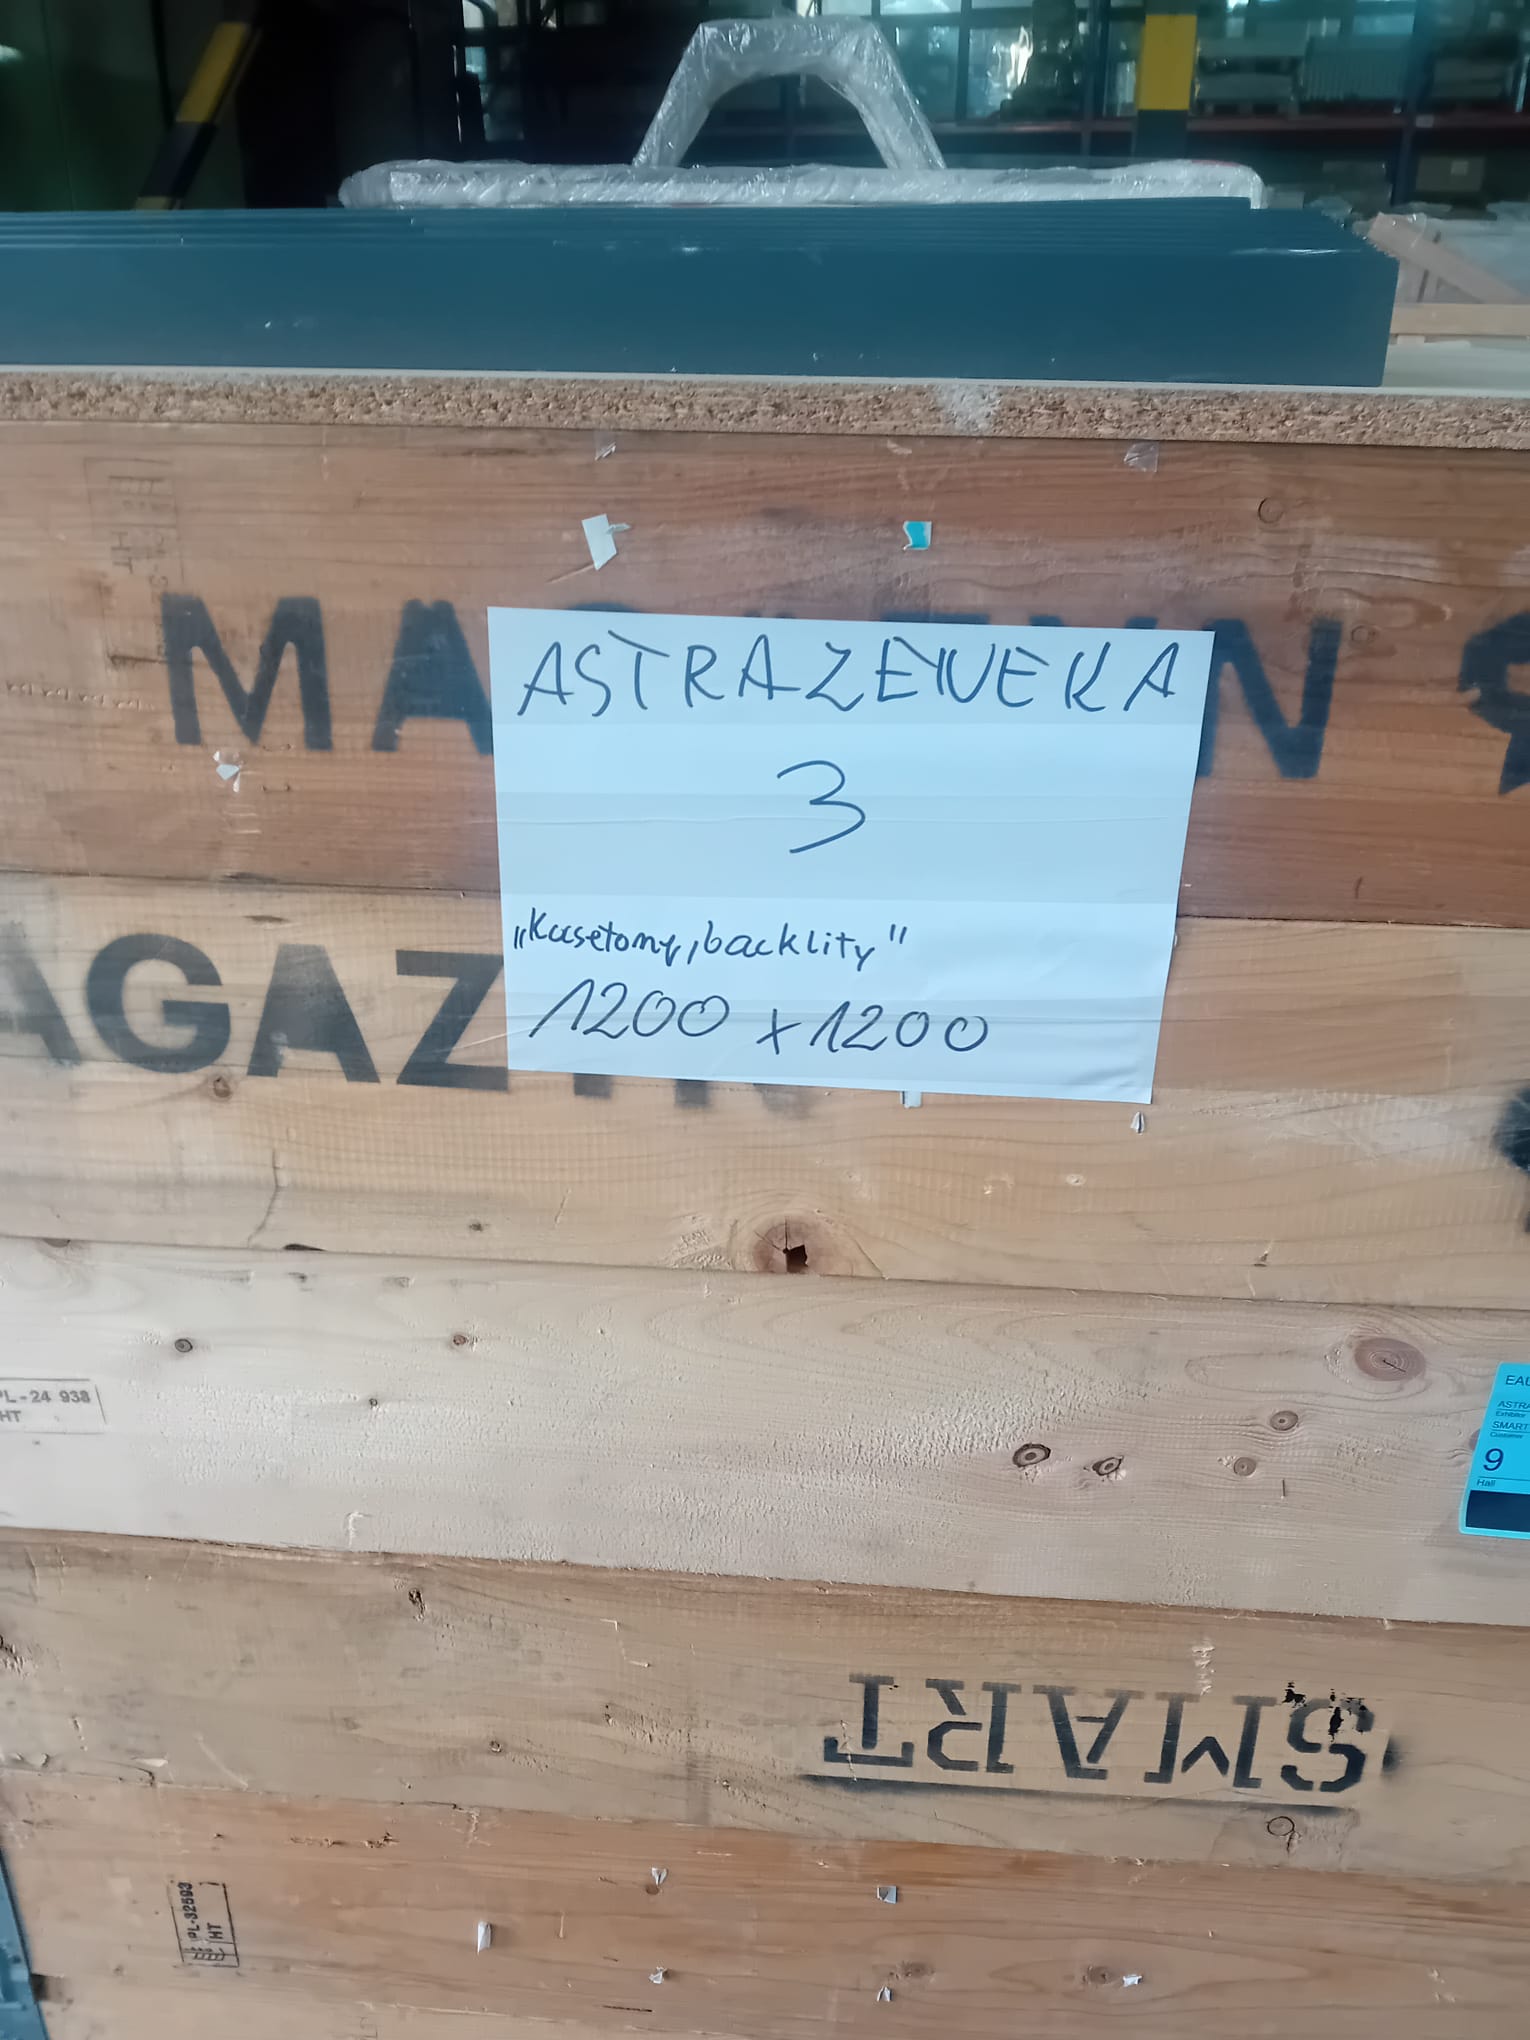 ASTRAZENEKA
3
„Kasetony, backlity"
1200 x 1200
PL-24 938
HT
EAU
ASTRA
Exhibitor
SMART
Customer
9
Hall
SMART
PL-32593
HT